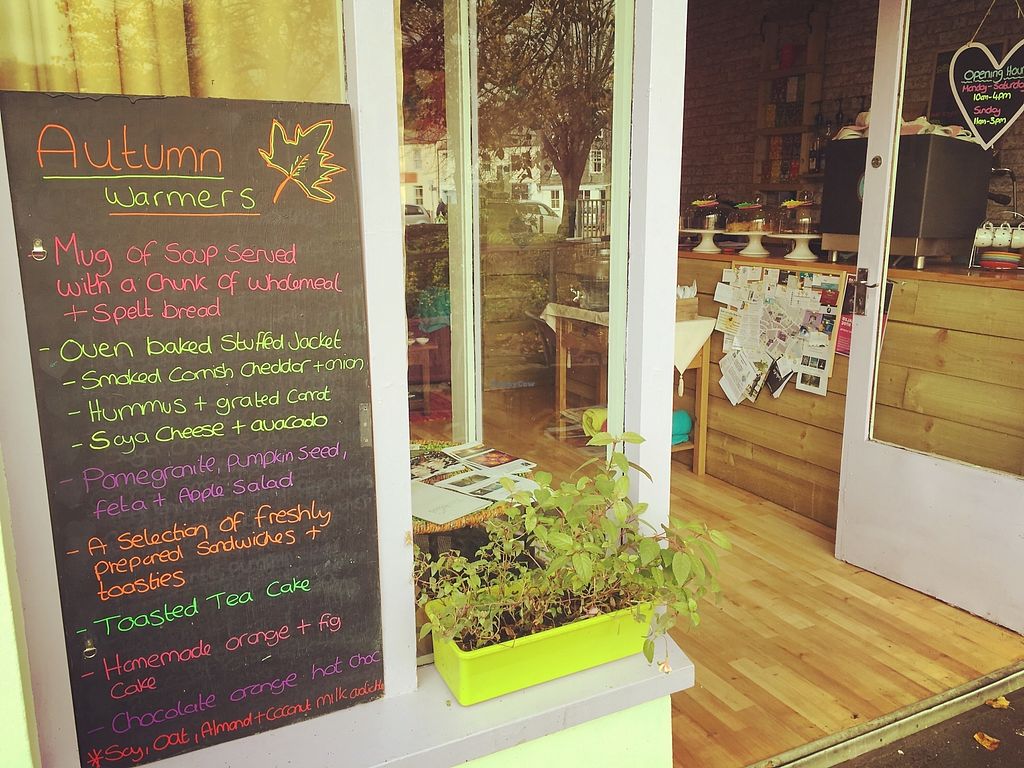 Autumn
Warmers
- Mug of Soup Served
with a Chunk of wholemeal
+ Spelt bread
- Oven baked Stuffed Jacket
- Smoked Cornish Cheddar + onion
- Hummus + grated Carrot
- Soya Cheese + avacado
- Pomegranite, Pumpkin Seed,
feta + Apple Salad
- A Selection of freshly
prepared Sandwiches +
toasties
- Toasted Tea Cake
- Homemade orange + fig
Cake
- Chocolate orange hot Choc
*Soy, Oat, Almond + Coconut milk
Opening Hou
Monday - Saturda
10am - 4pm
Sunday
11am - 3pm